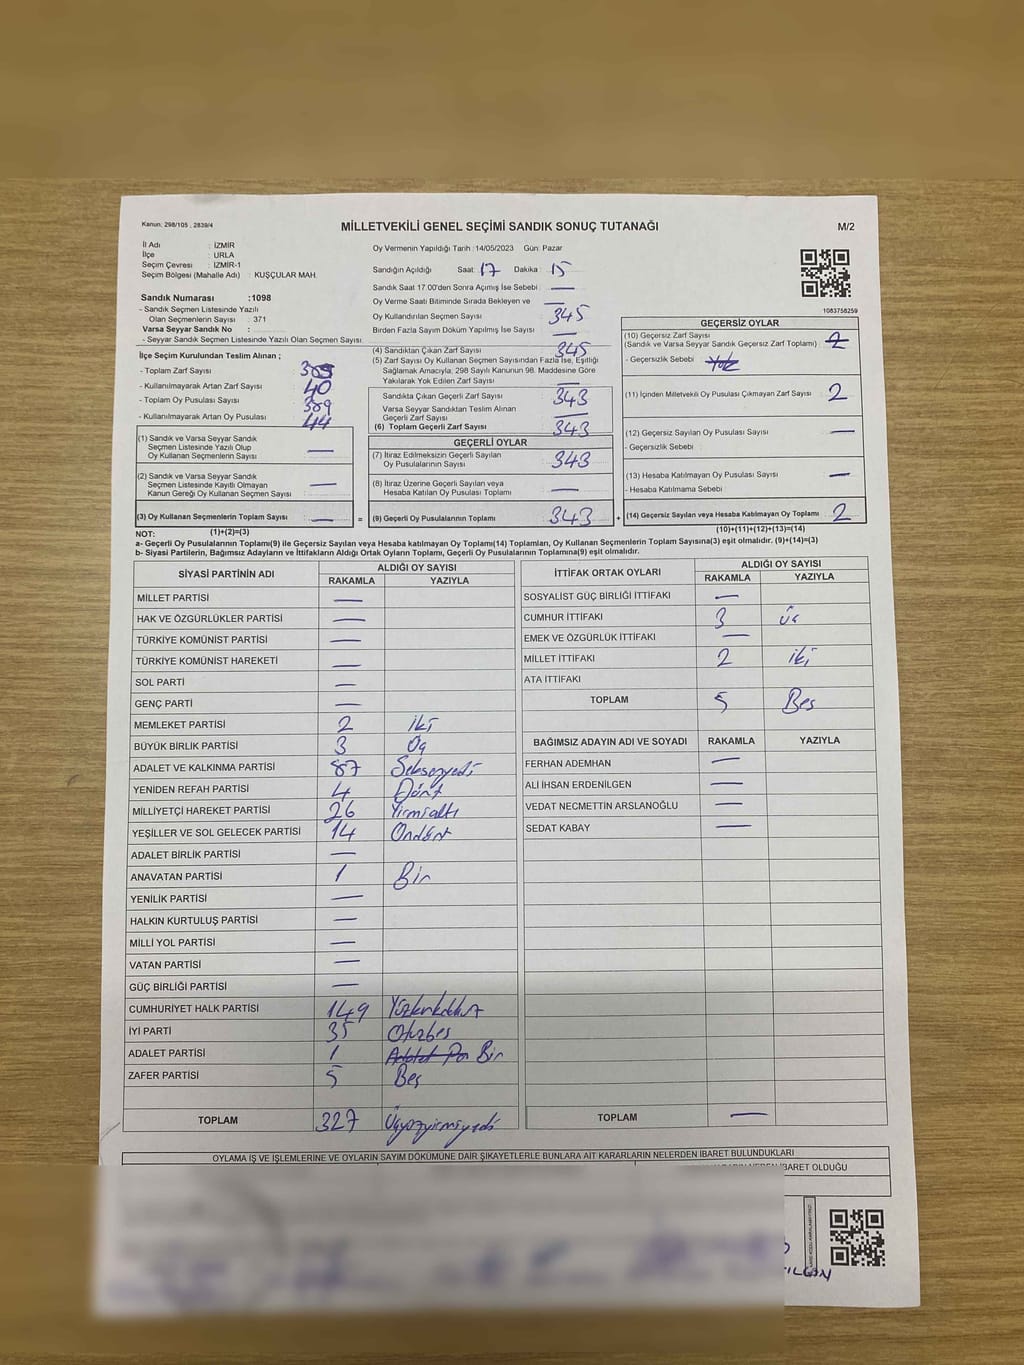 Kanun: 298/105 , 2839/4
MİLLETVEKİLİ GENEL SEÇİMİ SANDIK SONUÇ TUTANAĞI
M/2
İl Adı : İZMİR
İlçe : URLA
Seçim Çevresi : İZMİR-1
Seçim Bölgesi (Mahalle Adı) : KUŞÇULAR MAH.
Sandık Numarası :1098
- Sandık Seçmen Listesinde Yazılı
Olan Seçmenlerin Sayısı : 371
Varsa Seyyar Sandık No :
- Seyyar Sandık Seçmen Listesinde Yazılı Olan Seçmen Sayısı :
Oy Vermenin Yapıldığı Tarih :14/05/2023 Gün: Pazar
Sandığın Açıldığı Saat: 17 Dakika : 15
Sandık Saat 17.00'den Sonra Açımış İse Sebebi : —
Oy Verme Saati Bitiminde Sırada Bekleyen ve —
Oy Kullandırılan Seçmen Sayısı : 345
Birden Fazla Sayım Döküm Yapılmış İse Sayısı : —
1083758259
İlçe Seçim Kurulundan Teslim Alınan ;
- Toplam Zarf Sayısı :
- Kullanılmayarak Artan Zarf Sayısı : 40
- Toplam Oy Pusulası Sayısı : 389
- Kullanılmayarak Artan Oy Pusulası : 44
(1) Sandık ve Varsa Seyyar Sandık
Seçmen Listesinde Yazılı Olup
Oy Kullanan Seçmenlerin Sayısı : —
(2) Sandık ve Varsa Seyyar Sandık
Seçmen Listesinde Kayıtlı Olmayan
Kanun Gereği Oy Kullanan Seçmen Sayısı : —
(3) Oy Kullanan Seçmenlerin Toplam Sayısı : — =
(1)+(2)=(3)
(4) Sandıktan Çıkan Zarf Sayısı : 345
(5) Zarf Sayısı Oy Kullanan Seçmen Sayısından Fazla İse, Eşitliği
Sağlamak Amacıyla, 298 Sayılı Kanunun 98. Maddesine Göre
Yakılarak Yok Edilen Zarf Sayısı : —
Sandıkta Çıkan Geçerli Zarf Sayısı : 343
Varsa Seyyar Sandıktan Teslim Alınan
Geçerli Zarf Sayısı : —
(6) Toplam Geçerli Zarf Sayısı : 343
GEÇERLİ OYLAR
(7) İtiraz Edilmeksizin Geçerli Sayılan
Oy Pusulalarının Sayısı : 343
(8) İtiraz Üzerine Geçerli Sayılan veya
Hesaba Katılan Oy Pusulası Toplamı : —
(9) Geçerli Oy Pusulalarının Toplamı : 343 +
GEÇERSİZ OYLAR
(10) Geçersiz Zarf Sayısı
(Sandık ve Varsa Seyyar Sandık Geçersiz Zarf Toplamı) : 2
- Geçersizlik Sebebi : Yok
(11) İçinden Milletvekili Oy Pusulası Çıkmayan Zarf Sayısı : 2
(12) Geçersiz Sayılan Oy Pusulası Sayısı : —
- Geçersizlik Sebebi :
(13) Hesaba Katılmayan Oy Pusulası Sayısı : —
- Hesaba Katılmama Sebebi :
(14) Geçersiz Sayılan veya Hesaba Katılmayan Oy Toplamı : 2
(10)+(11)+(12)+(13)=(14)
NOT:
a- Geçerli Oy Pusulalarının Toplamı(9) ile Geçersiz Sayılan veya Hesaba katılmayan Oy Pusulaları Toplamı(14) Toplamları, Oy Kullanan Seçmenlerin Toplam Sayısına(3) eşit olmalıdır. (9)+(14)=(3)
b- Siyasi Partilerin, Bağımsız Adayların ve İttifakların Aldığı Ortak Oyların Toplamı, Geçerli Oy Pusulalarının Toplamına(9) eşit olmalıdır.
SİYASİ PARTİNİN ADI ALDIĞI OY SAYISI
RAKAMLA YAZIYLA
MİLLET PARTİSİ —
HAK VE ÖZGÜRLÜKLER PARTİSİ —
TÜRKİYE KOMÜNİST PARTİSİ —
TÜRKİYE KOMÜNİST HAREKETİ —
SOL PARTİ —
GENÇ PARTİ —
MEMLEKET PARTİSİ 2 İki
BÜYÜK BİRLİK PARTİSİ 3 Üç
ADALET VE KALKINMA PARTİSİ 87 Seksenyedi
YENİDEN REFAH PARTİSİ 4 Dört
MİLLİYETÇİ HAREKET PARTİSİ 26 Yirmialtı
YEŞİLLER VE SOL GELECEK PARTİSİ 14 Ondört
ADALET BİRLİK PARTİSİ —
ANAVATAN PARTİSİ 1 Bir
YENİLİK PARTİSİ —
HALKIN KURTULUŞ PARTİSİ —
MİLLİ YOL PARTİSİ —
VATAN PARTİSİ —
GÜÇ BİRLİĞİ PARTİSİ —
CUMHURİYET HALK PARTİSİ 149 Yüzkırkdokuz
İYİ PARTİ 35 Otuzbeş
ADALET PARTİSİ 1 Bir
ZAFER PARTİSİ 5 Beş
TOPLAM 327 Üçyüzyirmiyedi
İTTİFAK ORTAK OYLARI ALDIĞI OY SAYISI
RAKAMLA YAZIYLA
SOSYALİST GÜÇ BİRLİĞİ İTTİFAKI —
CUMHUR İTTİFAKI 3 Üç
EMEK VE ÖZGÜRLÜK İTTİFAKI —
MİLLET İTTİFAKI 2 iki
ATA İTTİFAKI
TOPLAM 5 Beş
BAĞIMSIZ ADAYIN ADI VE SOYADI RAKAMLA YAZIYLA
FERHAN ADEMHAN —
ALİ İHSAN ERDENİLGEN —
VEDAT NECMETTİN ARSLANOĞLU —
SEDAT KABAY —
TOPLAM —
OYLAMA İŞ VE İŞLEMLERİNE VE OYLARIN SAYIM DÖKÜMÜNE DAİR ŞİKAYETLERLE BUNLARA AİT KARARLARIN NELERDEN İBARET BULUNDUKLARI
İBARET OLDUĞU